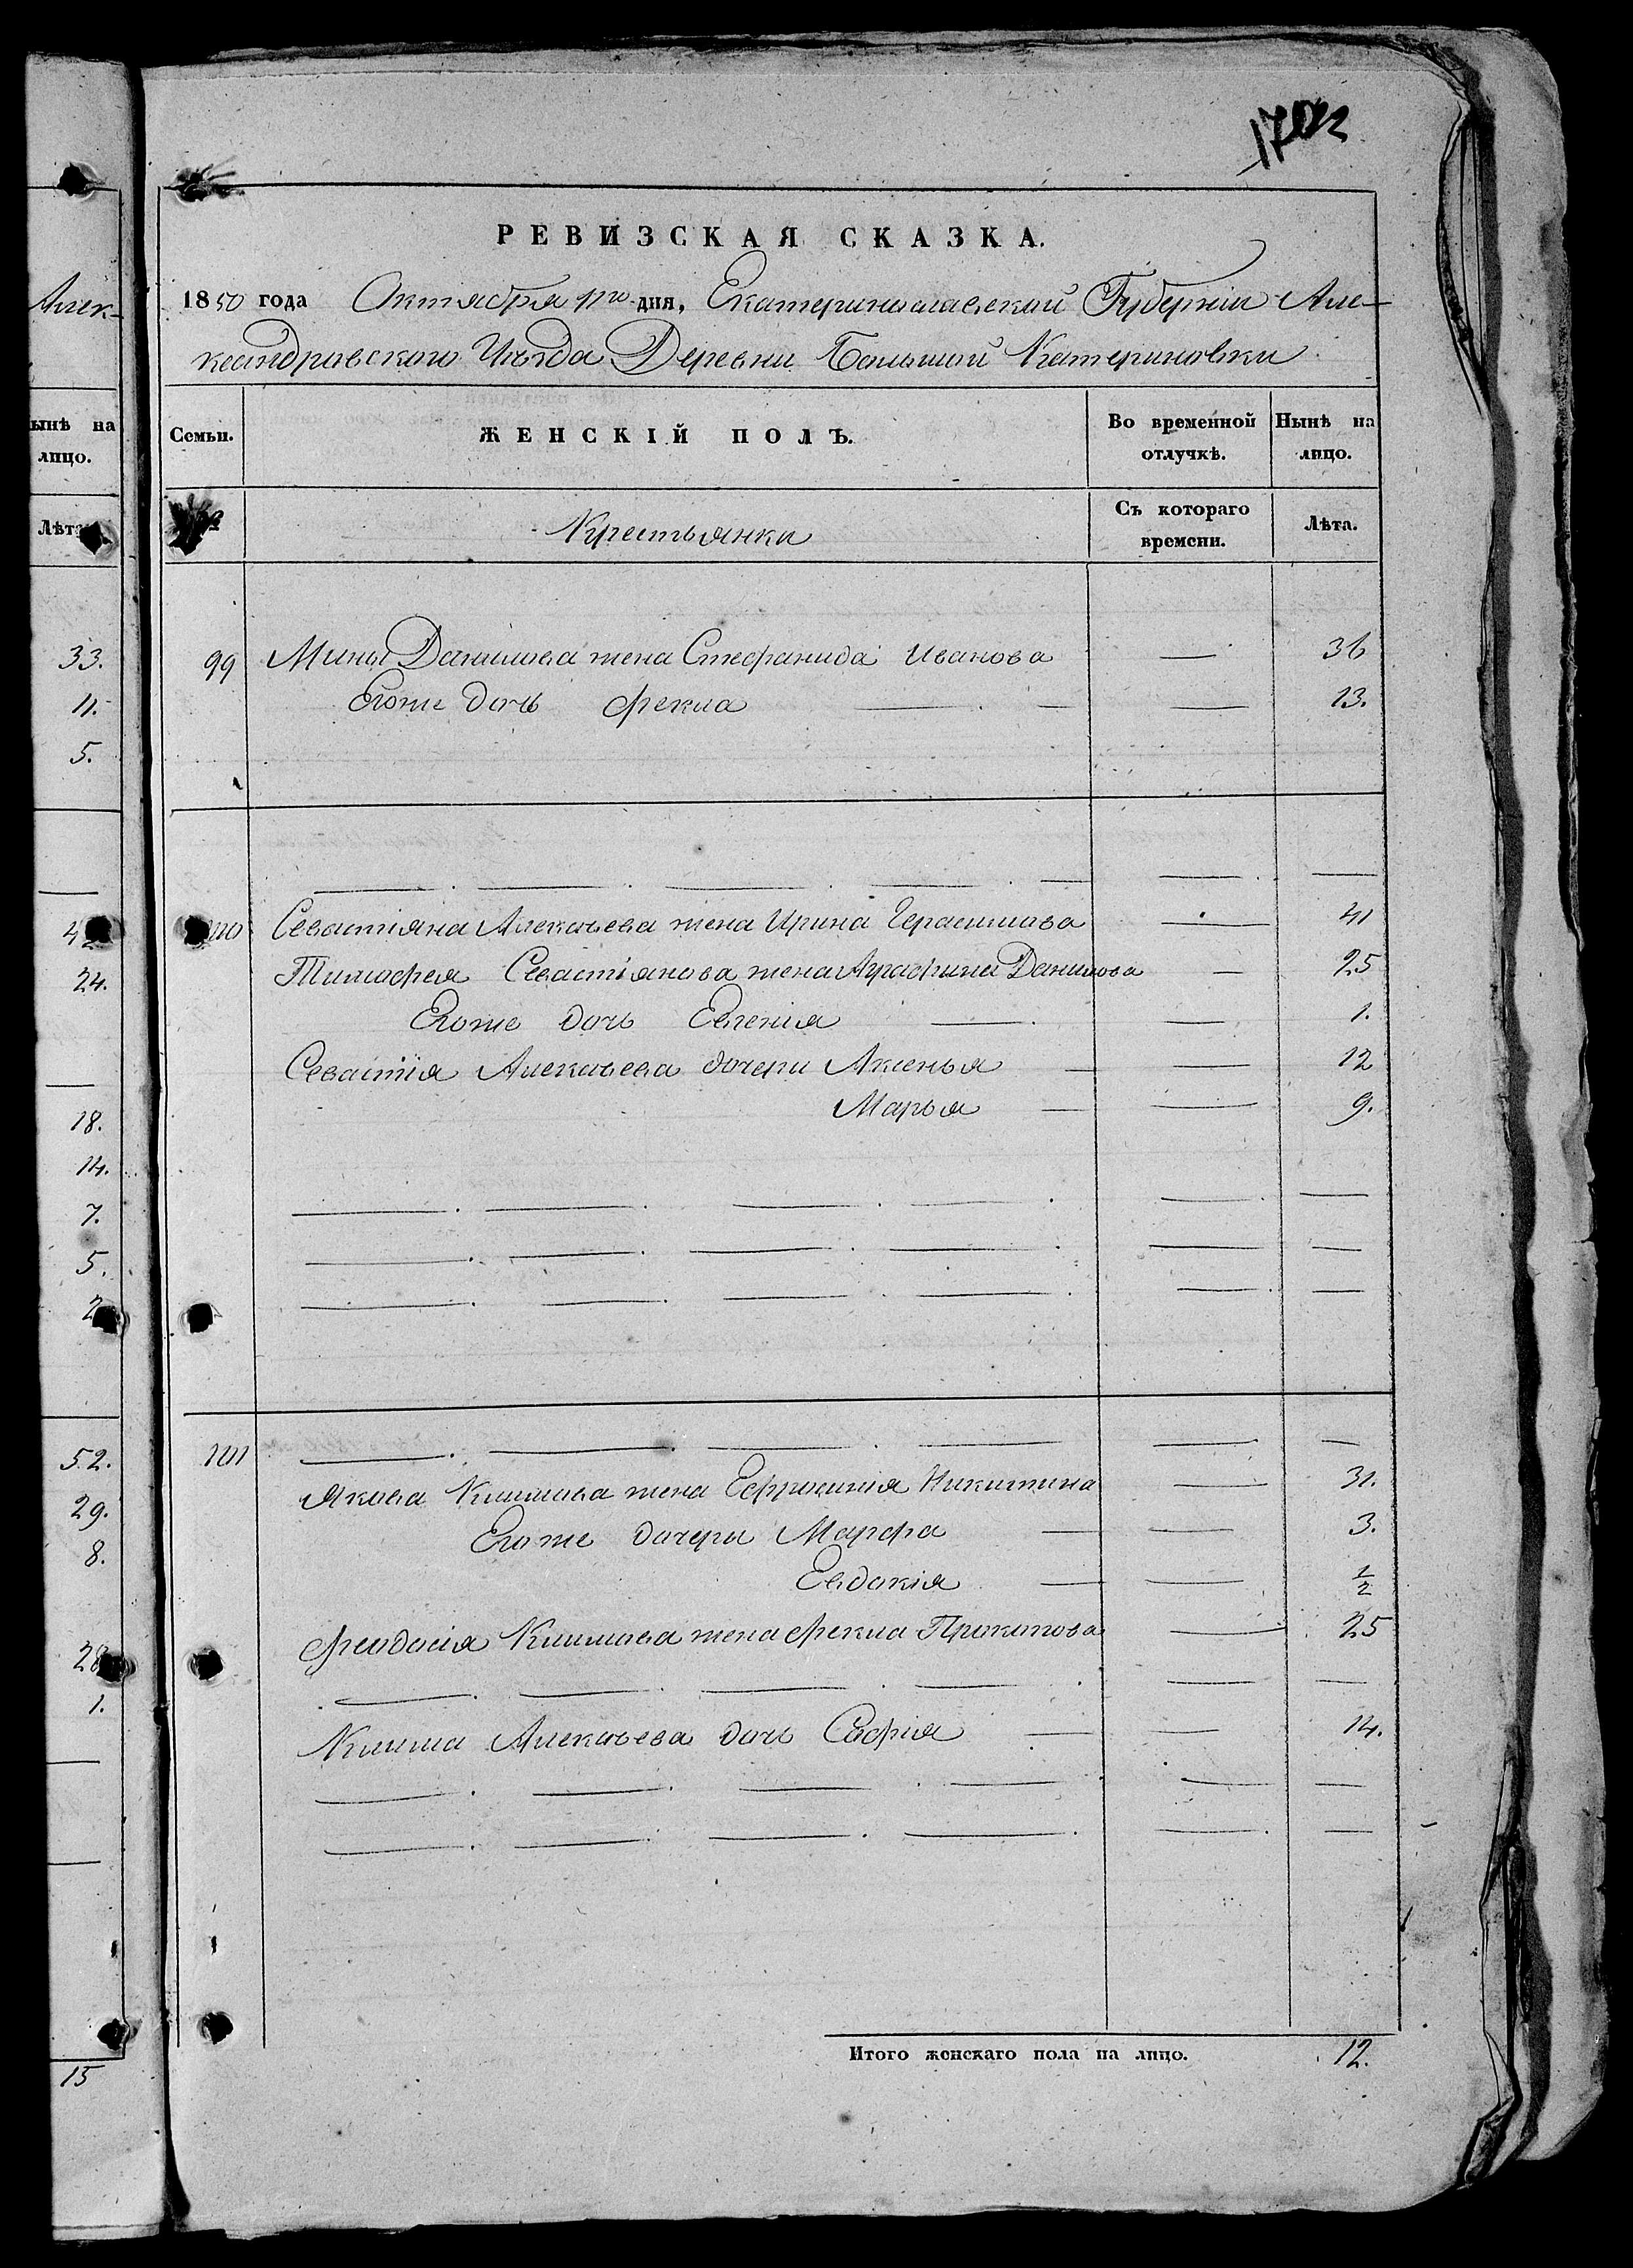 РЕВИЗСКАЯ СКАЗКА.
1850 года Октября 1го дня, Екатеринославской Губерніи Але-
ксандровского Уѣзда Деревни Большой Катериновки
Семьи. ЖЕНСКІЙ ПОЛЪ. Во временной отлучкѣ. Нынѣ на лицо.
Крестьянки Съ котораго времени. Лѣта.
99 Мины Данилова жена Стефанида Иванова — 36
Егоже дочь Фекла — — — 13.
100 Севастіяна Алексѣева жена Ирина Герасимова — 41
Тимофея Севастіянова жена Аграфина Данилова — 25
Егоже дочь Евгенія — — 1.
Севастія Алексѣева дочери Аксенья — — 12
Марья — — 9.
101
Якова Климова жена Ефросинія Никитина — 31.
Егоже дочери Марфа — — 3.
Евдокія — — 1/2
Феодосія Климова жена Фекла Прокопова — 25
Клима Алексѣева дочь Софія — — 14.
Итого женскаго пола на лицо. 12.
Алек-
ынѣ на
лицо.
Лѣта
33.
11.
5.
24.
18.
14.
7.
5.
52.
29.
8.
28
1.
15